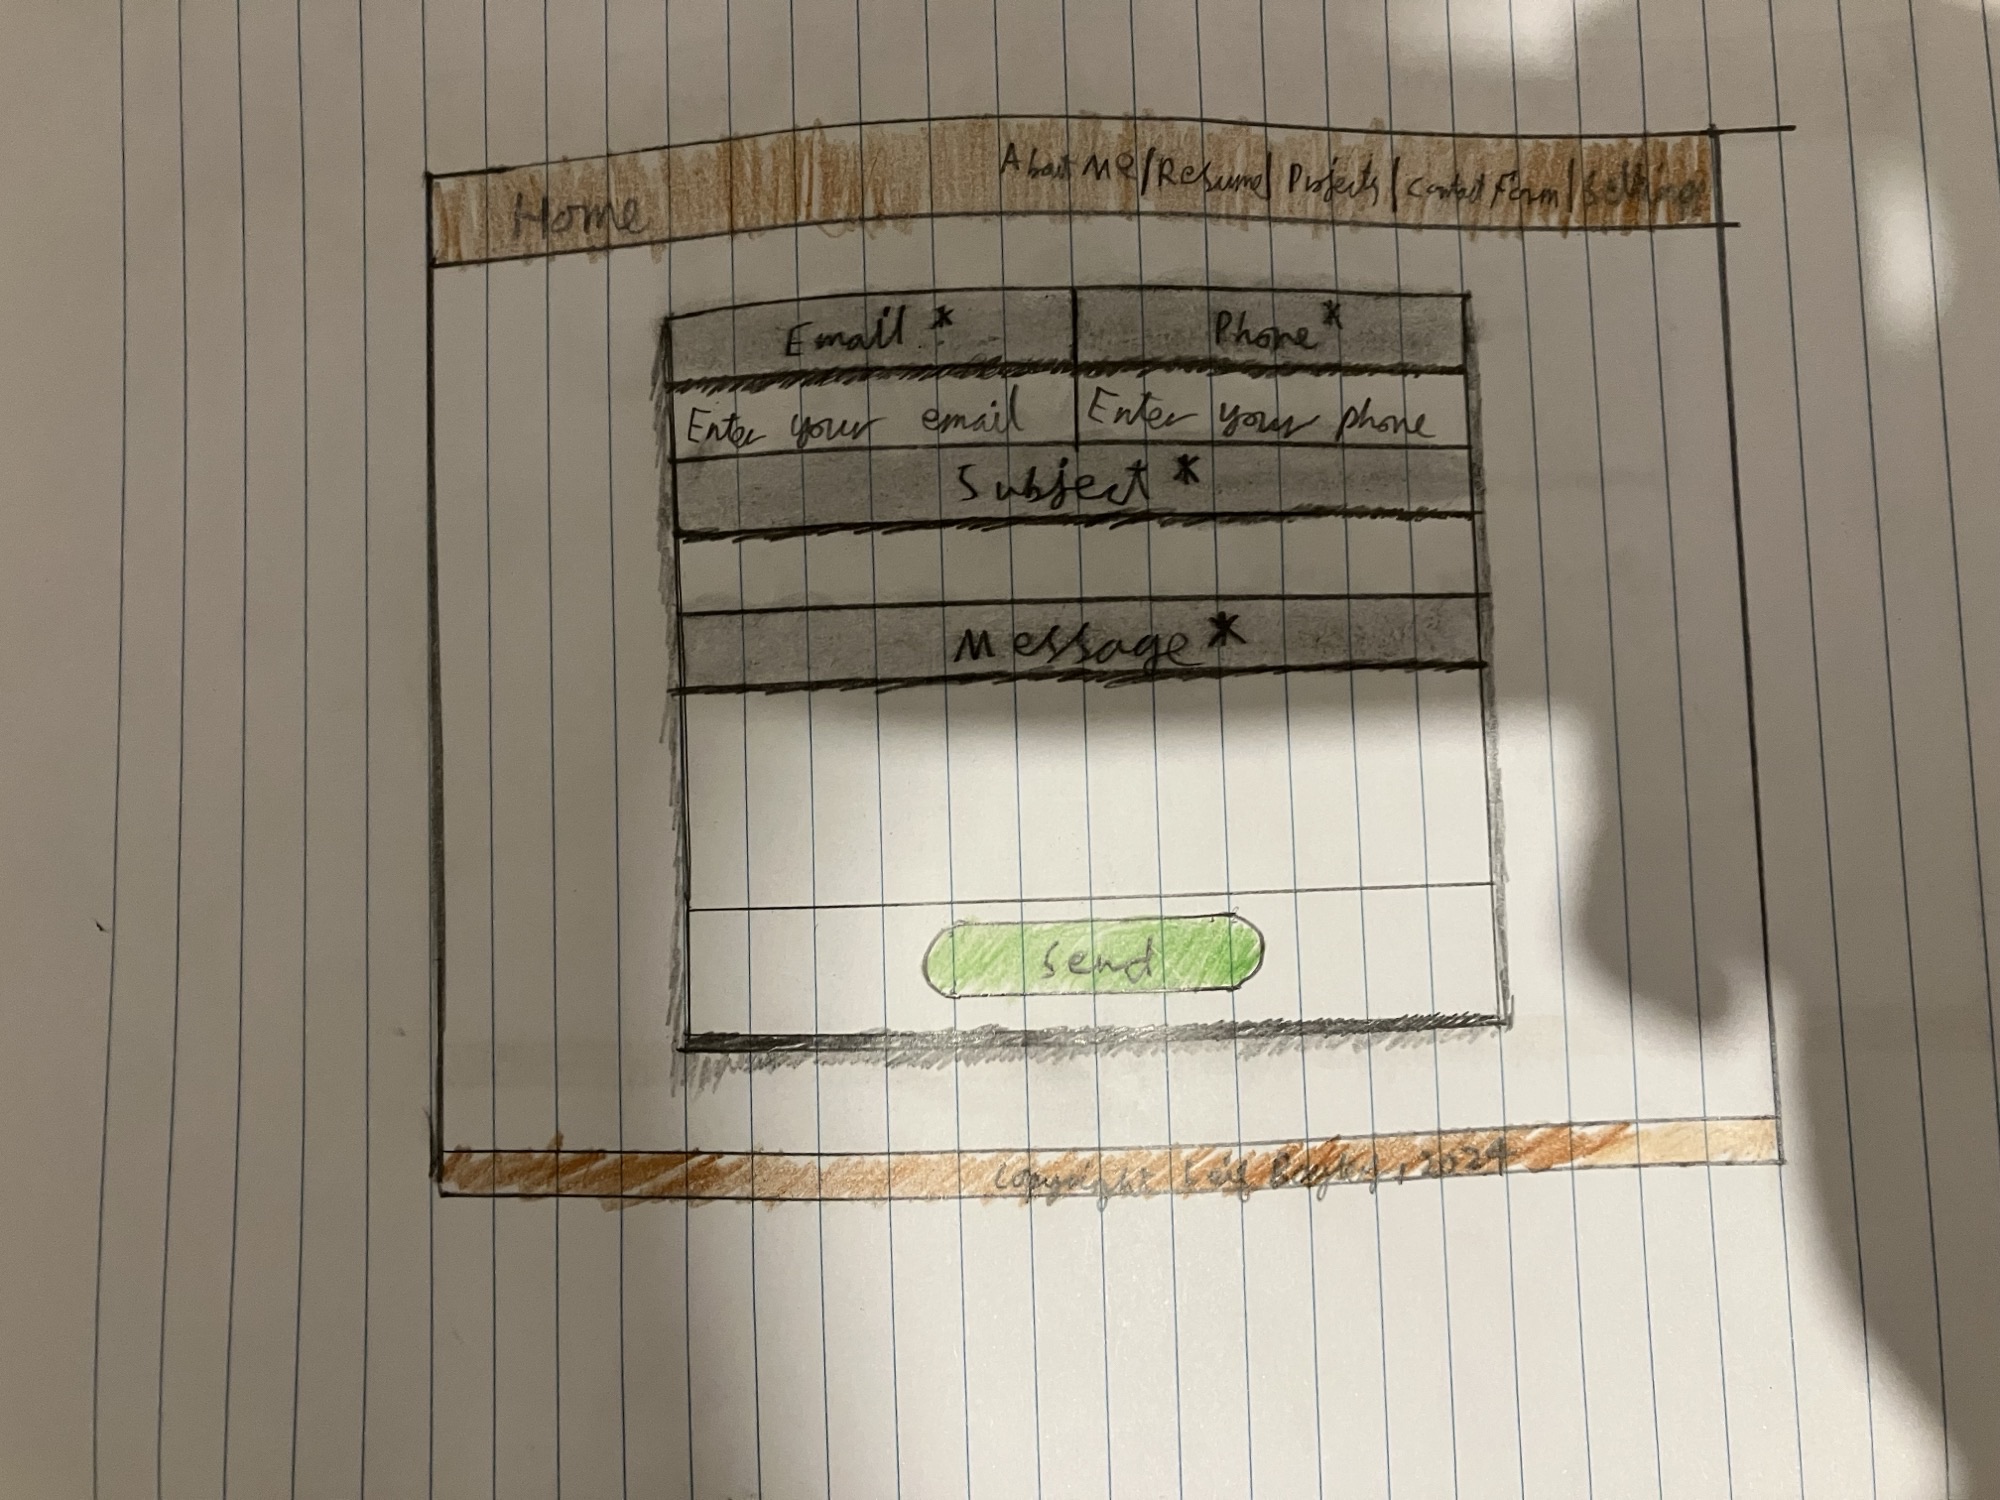 Home About Me/Resume/Projects/Contact Form/
Email * Phone *
Enter your email Enter your phone
Subject *
Message *
Send
2024